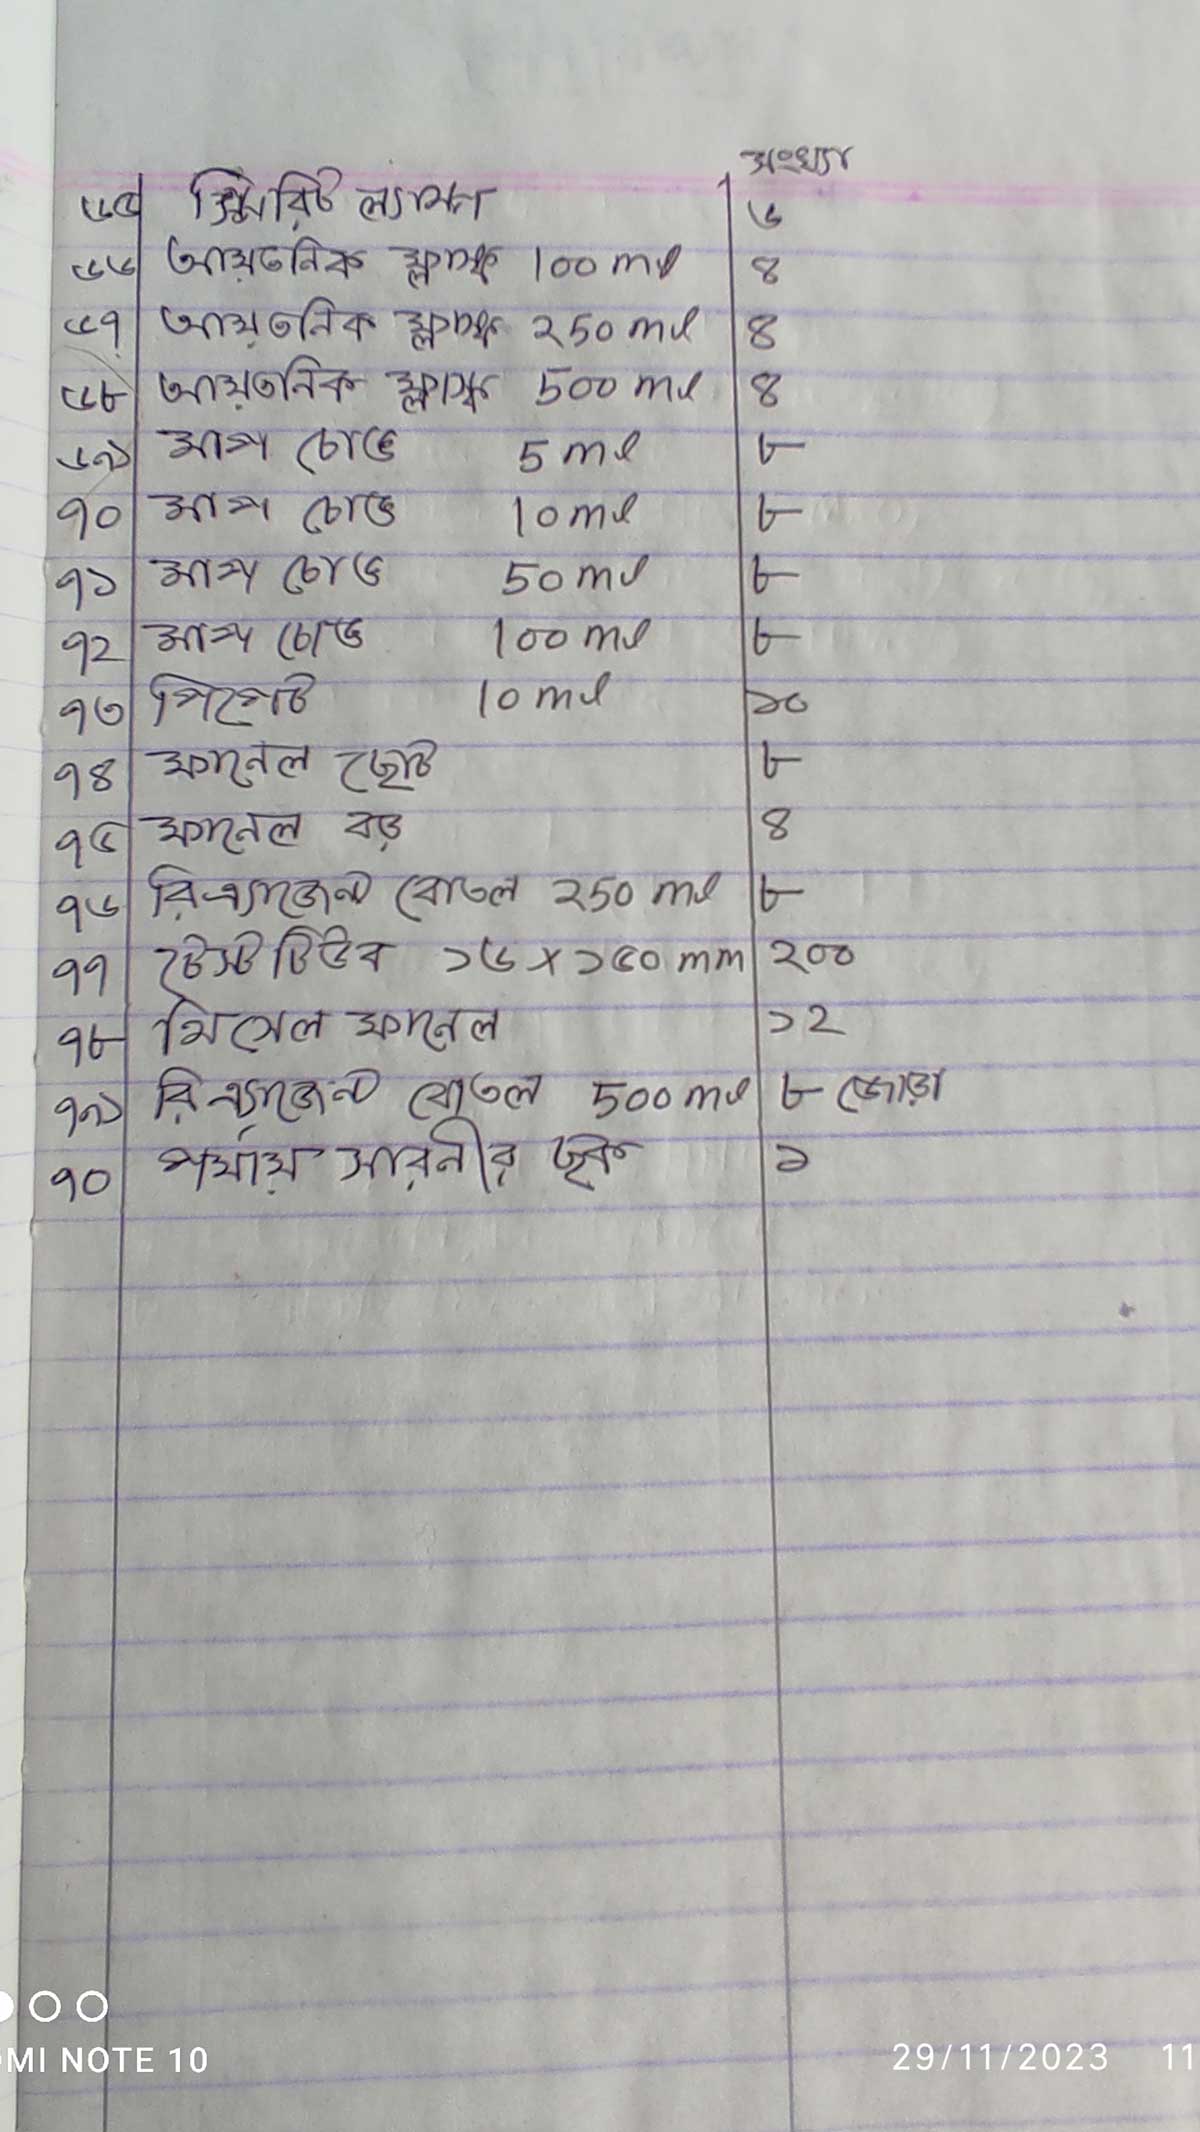 সংখ্যা
৬৫ স্পিরিট ল্যাম্প ৬
৬৬ আয়তনিক ফ্লাস্ক 100 ml ৪
৬৭ আয়তনিক ফ্লাস্ক ২50 ml ৪
৬৮ আয়তনিক ফ্লাস্ক 500 ml ৪
৬৯ মাপ চোঙ 5 ml ৮
৭০ মাপ চোঙ 10 ml ৮
৭১ মাপ চোঙ 50 ml ৮
৭২ মাপ চোঙ 100 ml ৮
৭৩ পিপেট 10 ml ১০
৭৪ ফানেল ছোট ৮
৭৫ ফানেল বড় ৪
৭৬ রিএ্যাজেন্ট বোতল ২50 ml ৮
৭৭ টেস্ট টিউব ১৬ x ১৫০ mm ২০০
৭৮ থিসেল ফানেল ১2
৭৯ রিএ্যাজেন্ট বোতল 500 ml ৮ জোড়া
৭০ পর্যায় সারনীর ছক ১
OMI NOTE 10
29/11/2023 11